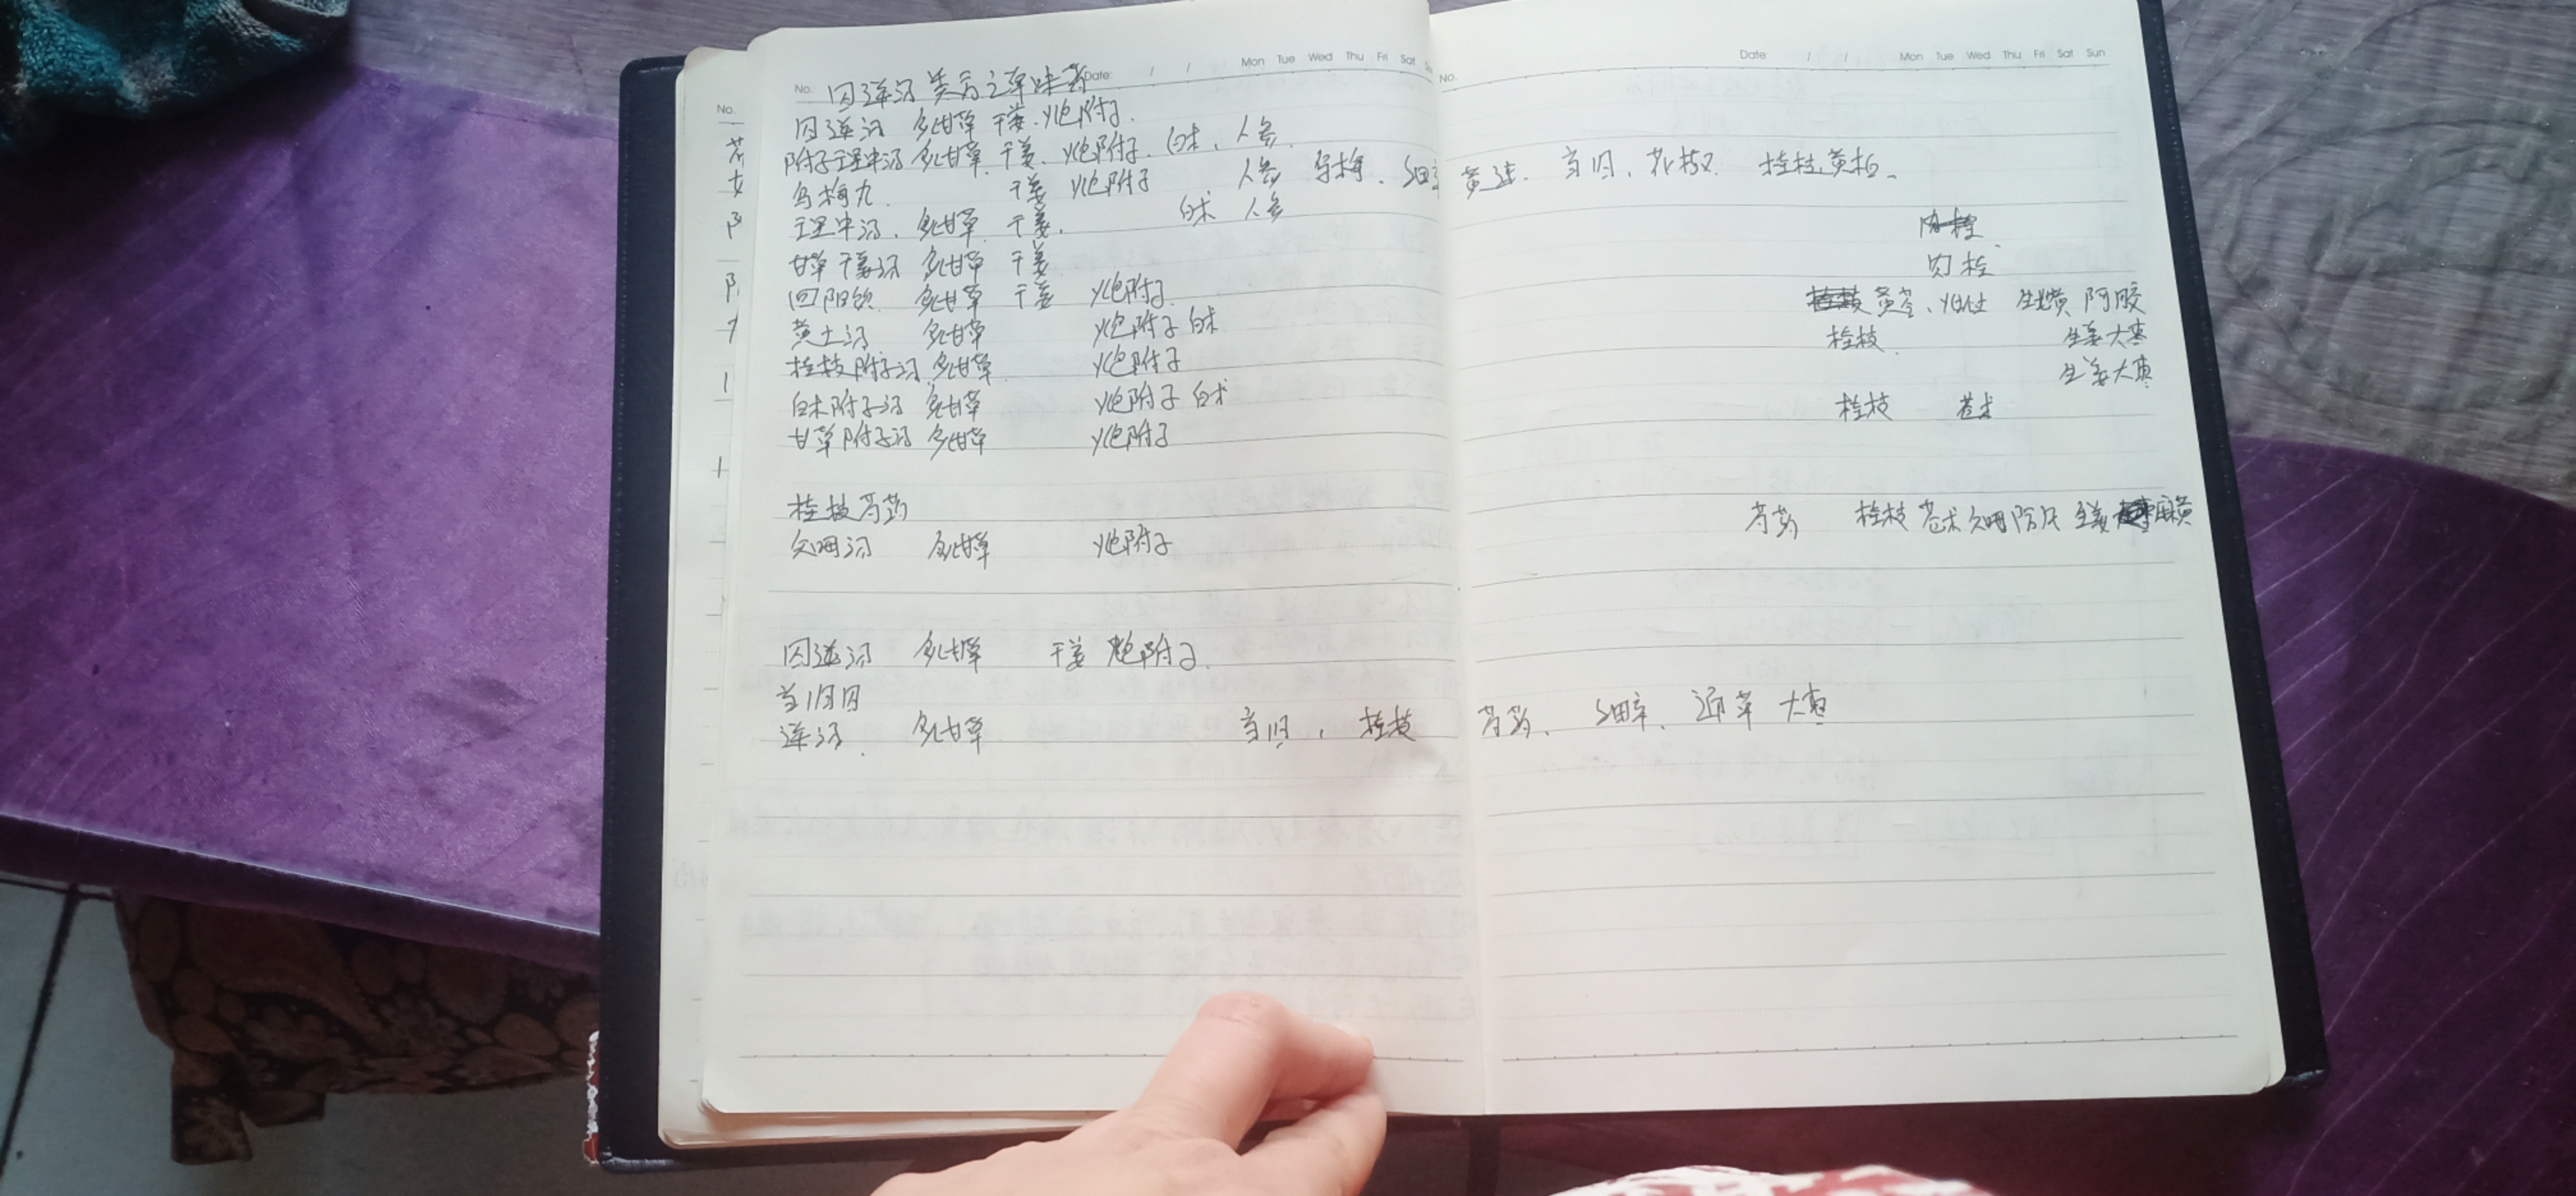 No. 四逆汤类方之草味药 Date: / / Mon Tue Wed Thu Fri Sat
四逆汤 炙甘草 干姜、炮附子.
附子理中汤 炙甘草、干姜、炮附子、白术、人参.
乌梅丸. 干姜 炮附子 人参 乌梅、细辛 黄连、当归、花椒、桂枝、黄柏、
理中汤、炙甘草、干姜. 白术 人参
甘草干姜汤 炙甘草 干姜
回阳饮. 炙甘草 干姜 炮附子. 肉桂
黄土汤 炙甘草 炮附子 白术 黄芩、灶土 生地黄 阿胶
桂枝附子汤 炙甘草 炮附子 桂枝. 生姜大枣
白术附子汤 炙甘草 炮附子 白术 生姜大枣
甘草附子汤 炙甘草 炮附子 桂枝 苍术
桂枝芍药
知母汤 炙甘草 炮附子 芍药 桂枝 苍术 知母 防风 生姜 麻黄
四逆汤 炙甘草 干姜 炮附子.
当归四
逆汤. 炙甘草 当归、桂枝 芍药、细辛、通草 大枣
No. Date: / / Mon Tue Wed Thu Fri Sat Sun
No.